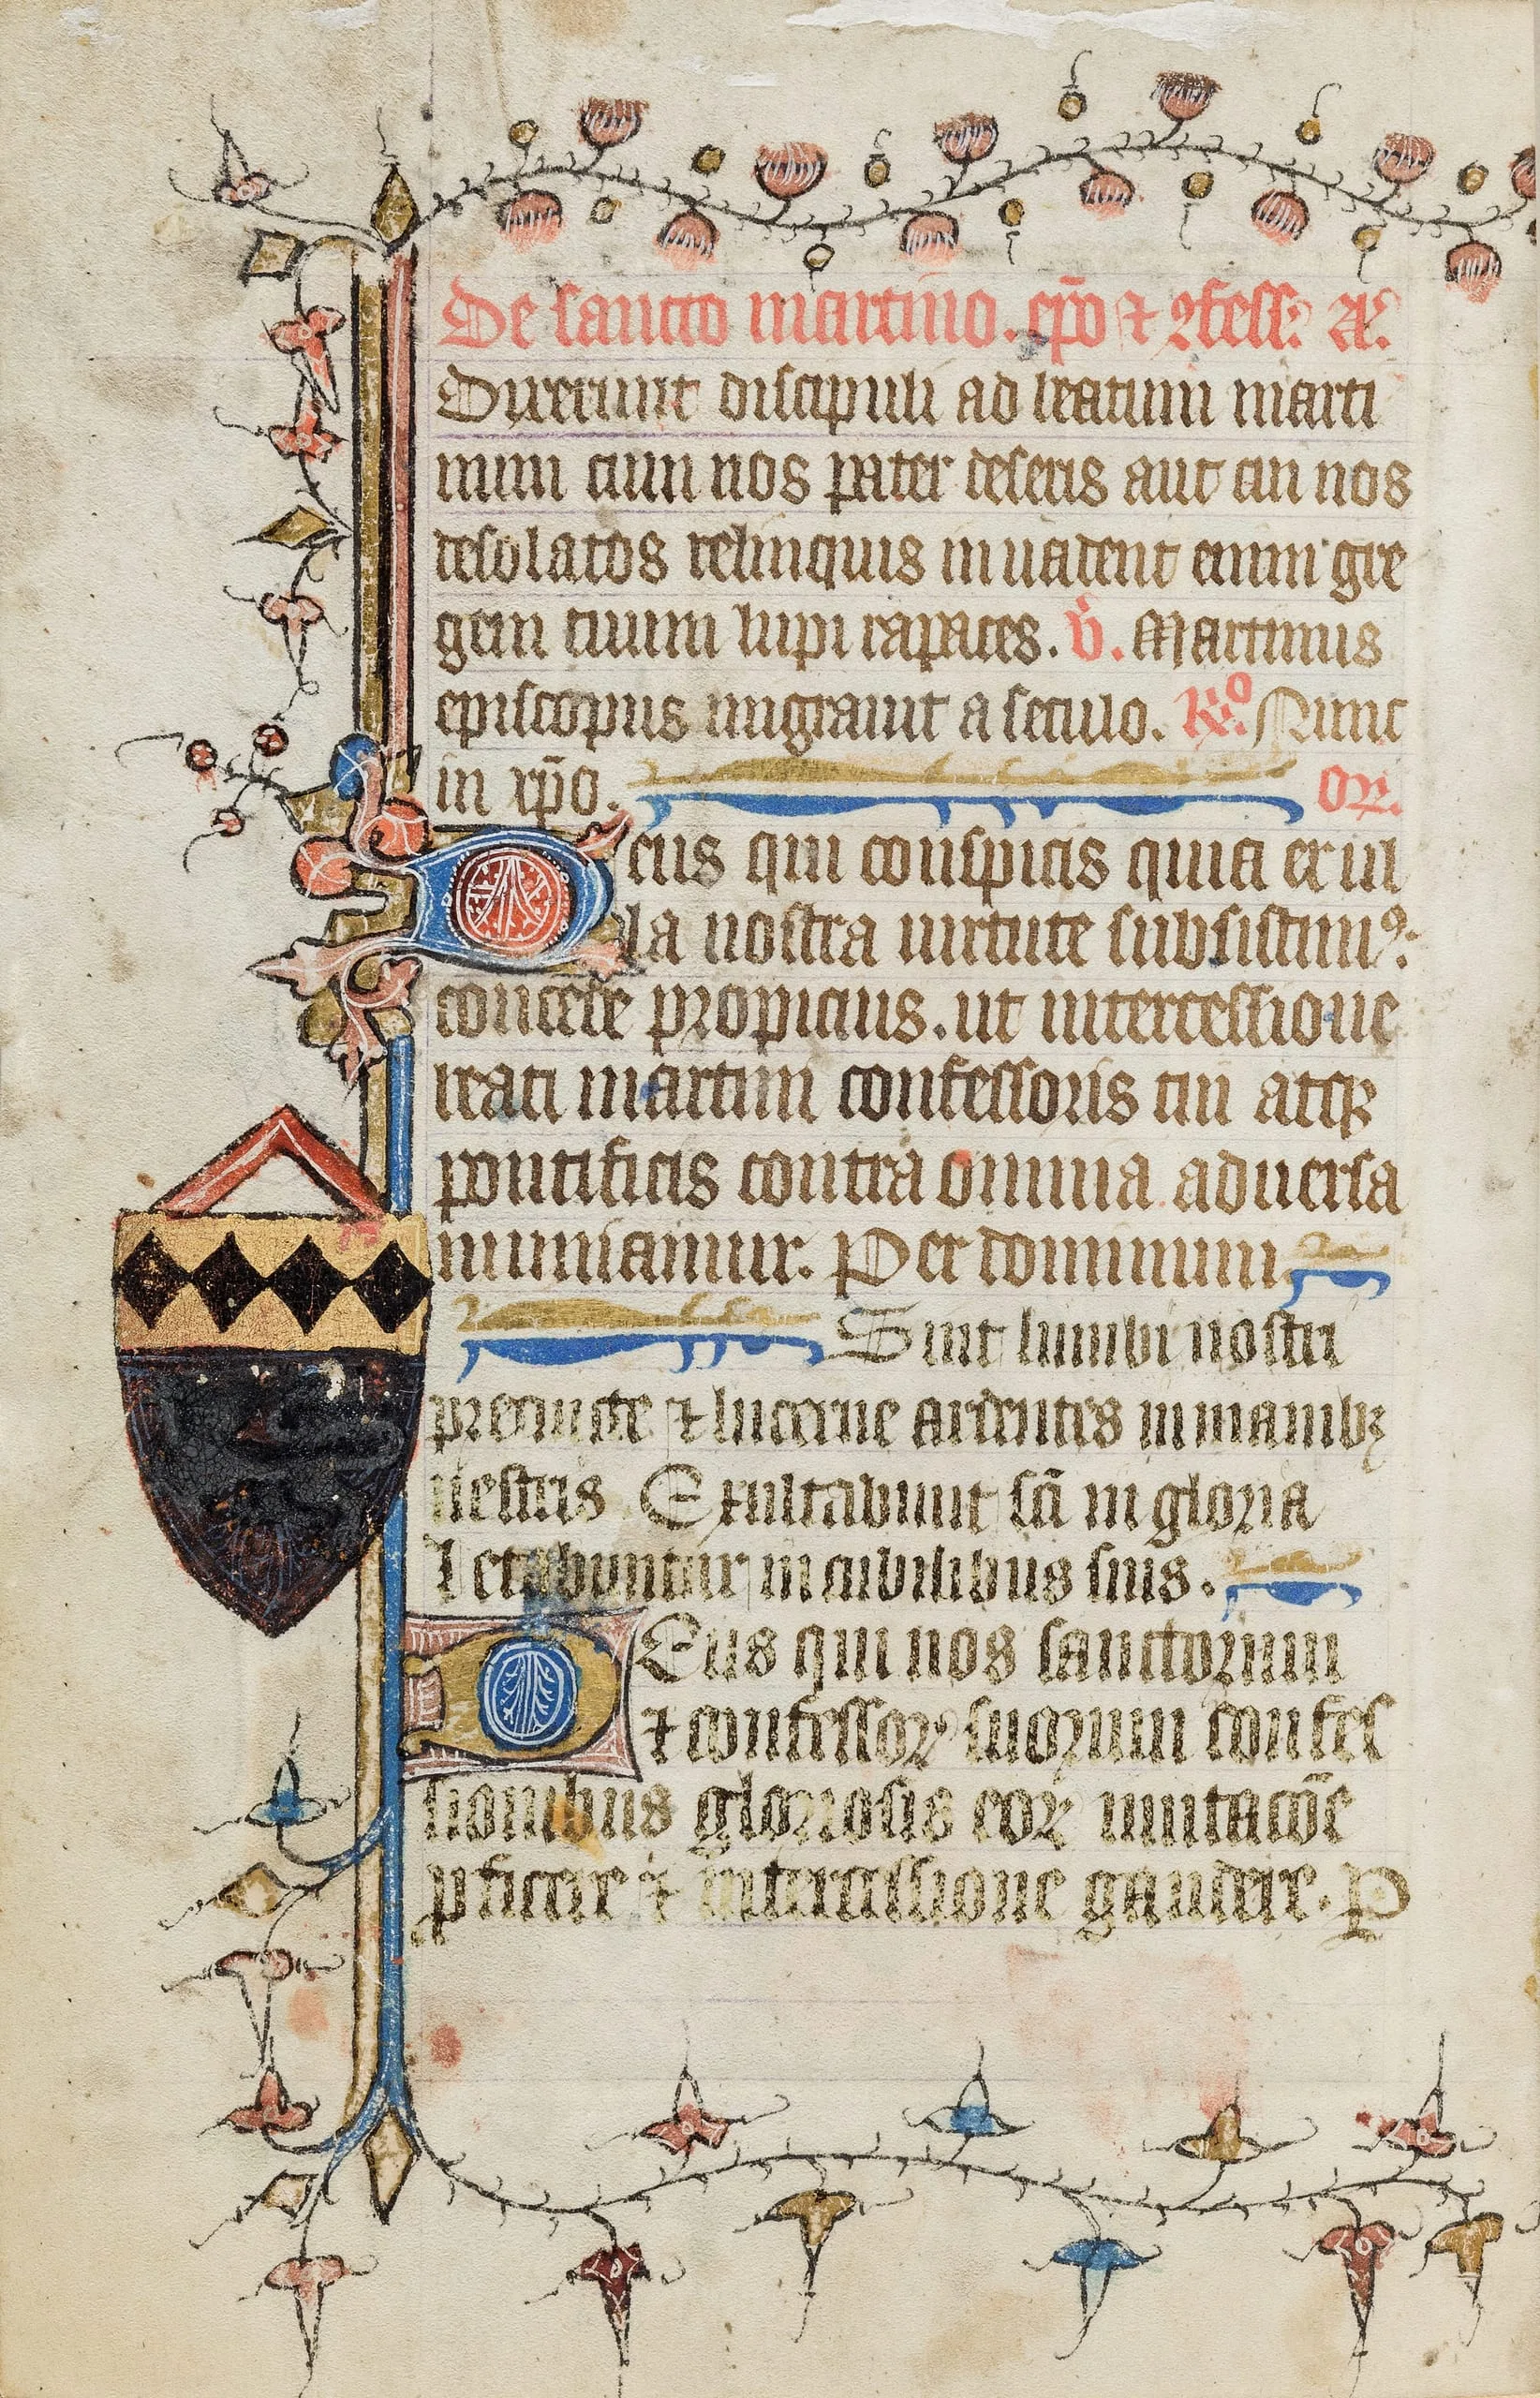 De sancto martino. ep̄o ⁊ ꝯfess: A͞.
Dixerunt discipuli ad beatum marti
num cum nos pater deseris aut cui nos
desolatos relinquis inuadent enim gre
gem tuum lupi rapaces. V̇. Martinus
episcopus migrauit a seculo. R̸o. Nunc
in xp̄o. Or.
eus qui conspicis quia ex ul
la nostra uirtute subsistimꝰ:
concede propicius. ut intercessione
beati martini confessoris tui atqꝫ
pontificis contra omnia aduersa
muniamur. Per dominum
Sint lumbi nostri
precincte ⁊ lucerne ardentes in manibꝫ
uestris Exultabunt sc̄i in gloria
Letabuntur in cubilibus suis.
Eus qui nos sanctorum
⁊ confessoꝝ suorum confes
sionibus gloriosis eoꝝ imitac̄o̅e
ꝓficere ⁊ intercessione gaudere. P